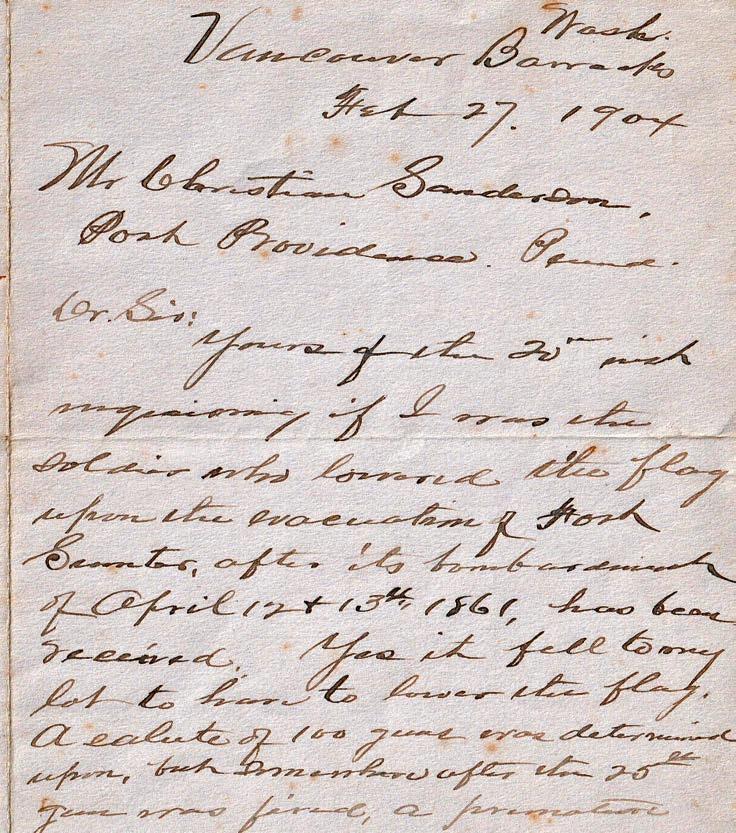 Wash.
Vancouver Barracks
Feb 27. 1904
Mr Christian Sanderson,
Port Providence. Penna.
Dr. Sir:
Yours of the 20th inst
inquiring if I was the
soldier who lowered the flag
upon the evacuation of Fort
Sumter, after its bombardment
of April 12 & 13th, 1861, has been
received. Yes it fell to my
lot to have to lower the flag.
A salute of 100 guns was determined
upon, but somewhere after the 25th
gun was fired, a premature